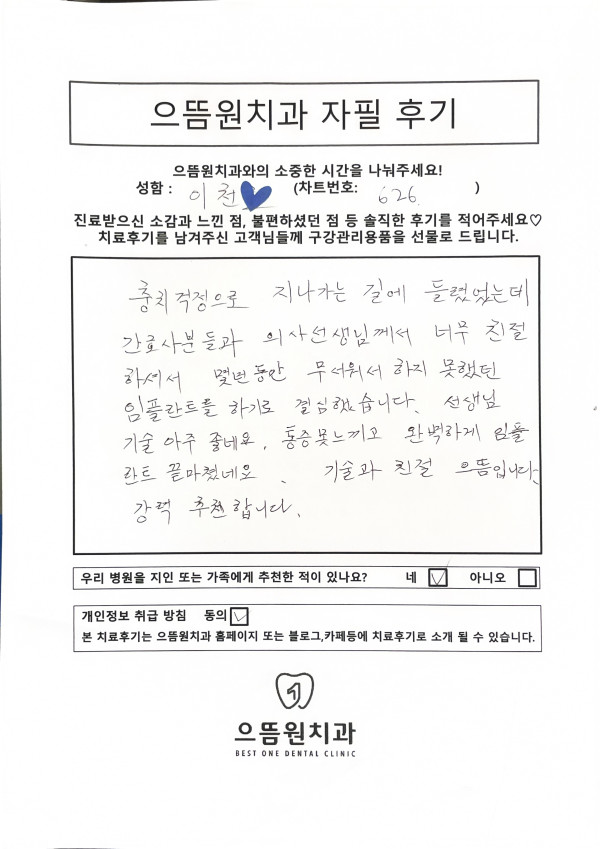 으뜸원치과 자필 후기
으뜸원치과와의 소중한 시간을 나눠주세요!
성함 : 이천 (차트번호: 626 )
진료받으신 소감과 느낀 점, 불편하셨던 점 등 솔직한 후기를 적어주세요♡
치료후기를 남겨주신 고객님들께 구강관리용품을 선물로 드립니다.
충치걱정으로 지나가는 길에 들렸었는데
간호사분들과 의사선생님께서 너무 친절
하셔서 몇년동안 무서워서 하지 못했던
임플란트를 하기로 결심했습니다. 선생님
기술 아주 좋네요, 통증못느끼고 완벽하게 임플
란트 끝마쳤네요. 기술과 친절 으뜸입니다.
강력 추천합니다.
우리 병원을 지인 또는 가족에게 추천한 적이 있나요? 네 아니오
개인정보 취급 방침 동의
본 치료후기는 으뜸원치과 홈페이지 또는 블로그,카페등에 치료후기로 소개 될 수 있습니다.
1
으뜸원치과
BEST ONE DENTAL CLINIC